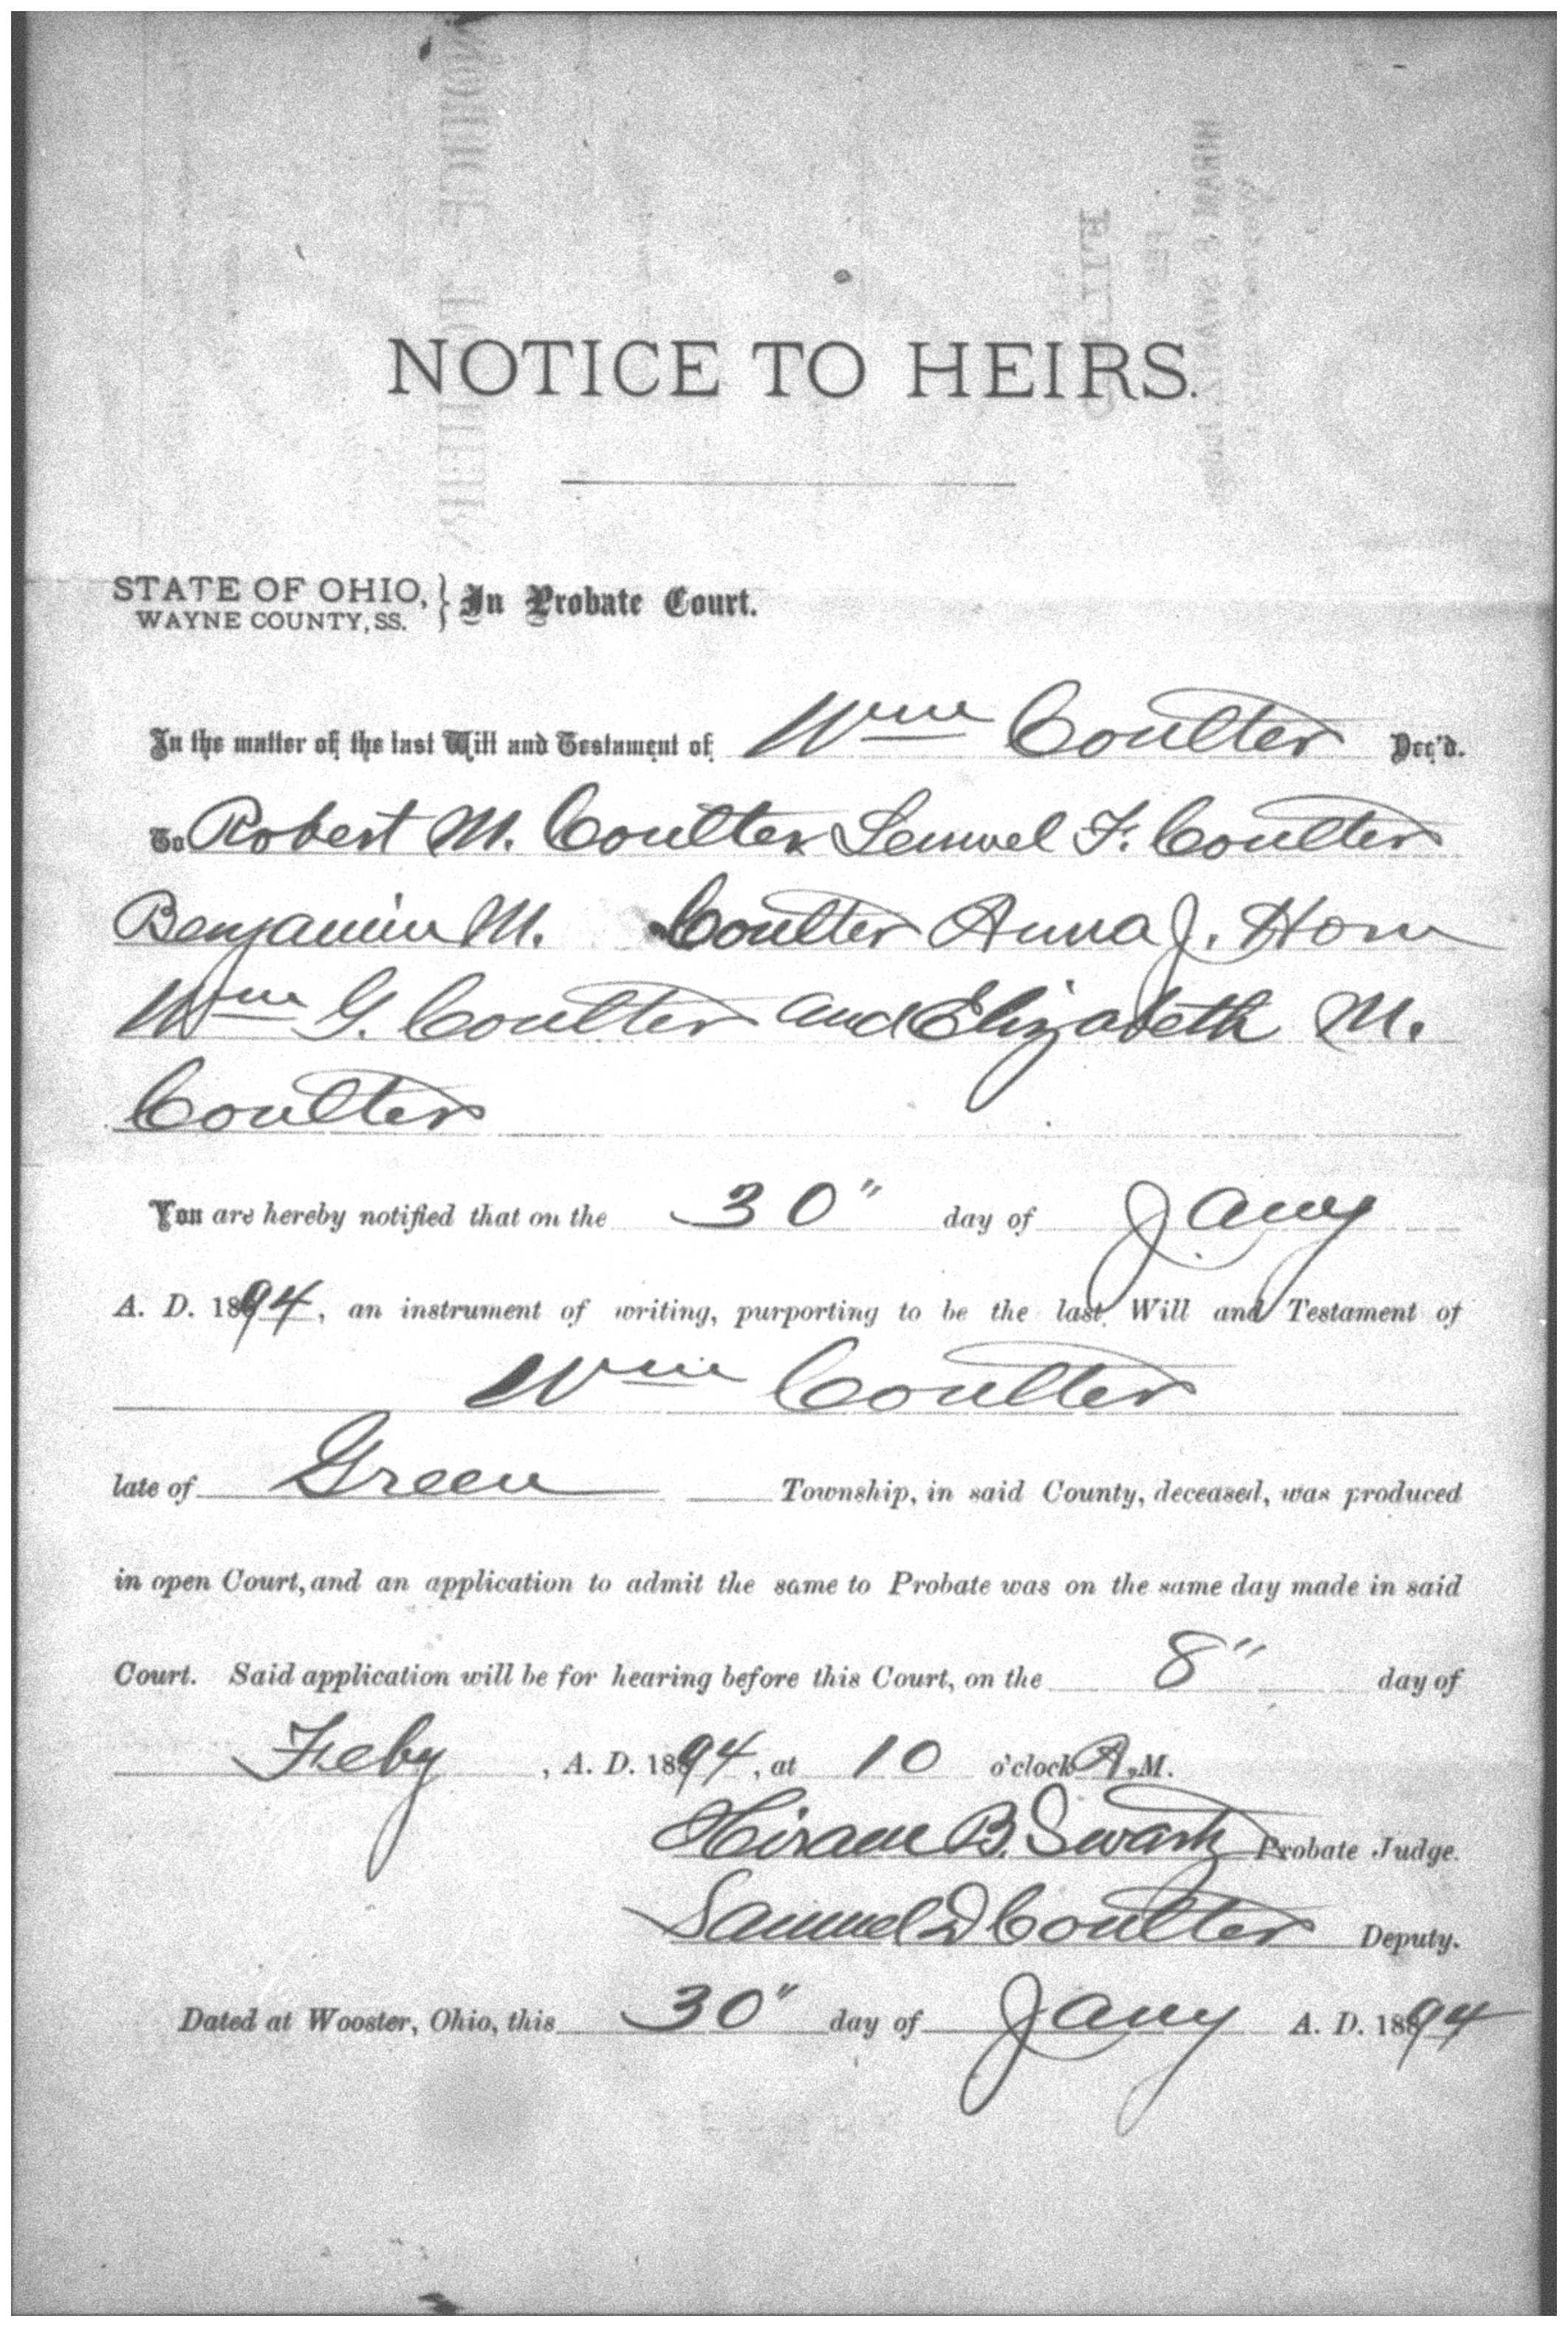 NOTICE TO HEIRS.
STATE OF OHIO, } In Probate Court.
WAYNE COUNTY, SS.
In the matter of the last Will and Testament of Wm Coulter Dec'd.
To Robert M. Coulter Lemuel F. Coulter
Benjamin M. Coulter Anna J. Horn
Wm G. Coulter and Elizabeth M.
Coulter
You are hereby notified that on the 30" day of Jany
A. D. 1894, an instrument of writing, purporting to be the last Will and Testament of
Wm Coulter
late of Green Township, in said County, deceased, was produced
in open Court, and an application to admit the same to Probate was on the same day made in said
Court. Said application will be for hearing before this Court, on the 8" day of
Feby, A. D. 1894, at 10 o'clock A.M.
Hiram B. Swartz Probate Judge.
Samuel D Coulter Deputy.
Dated at Wooster, Ohio, this 30" day of Jany A. D. 1894